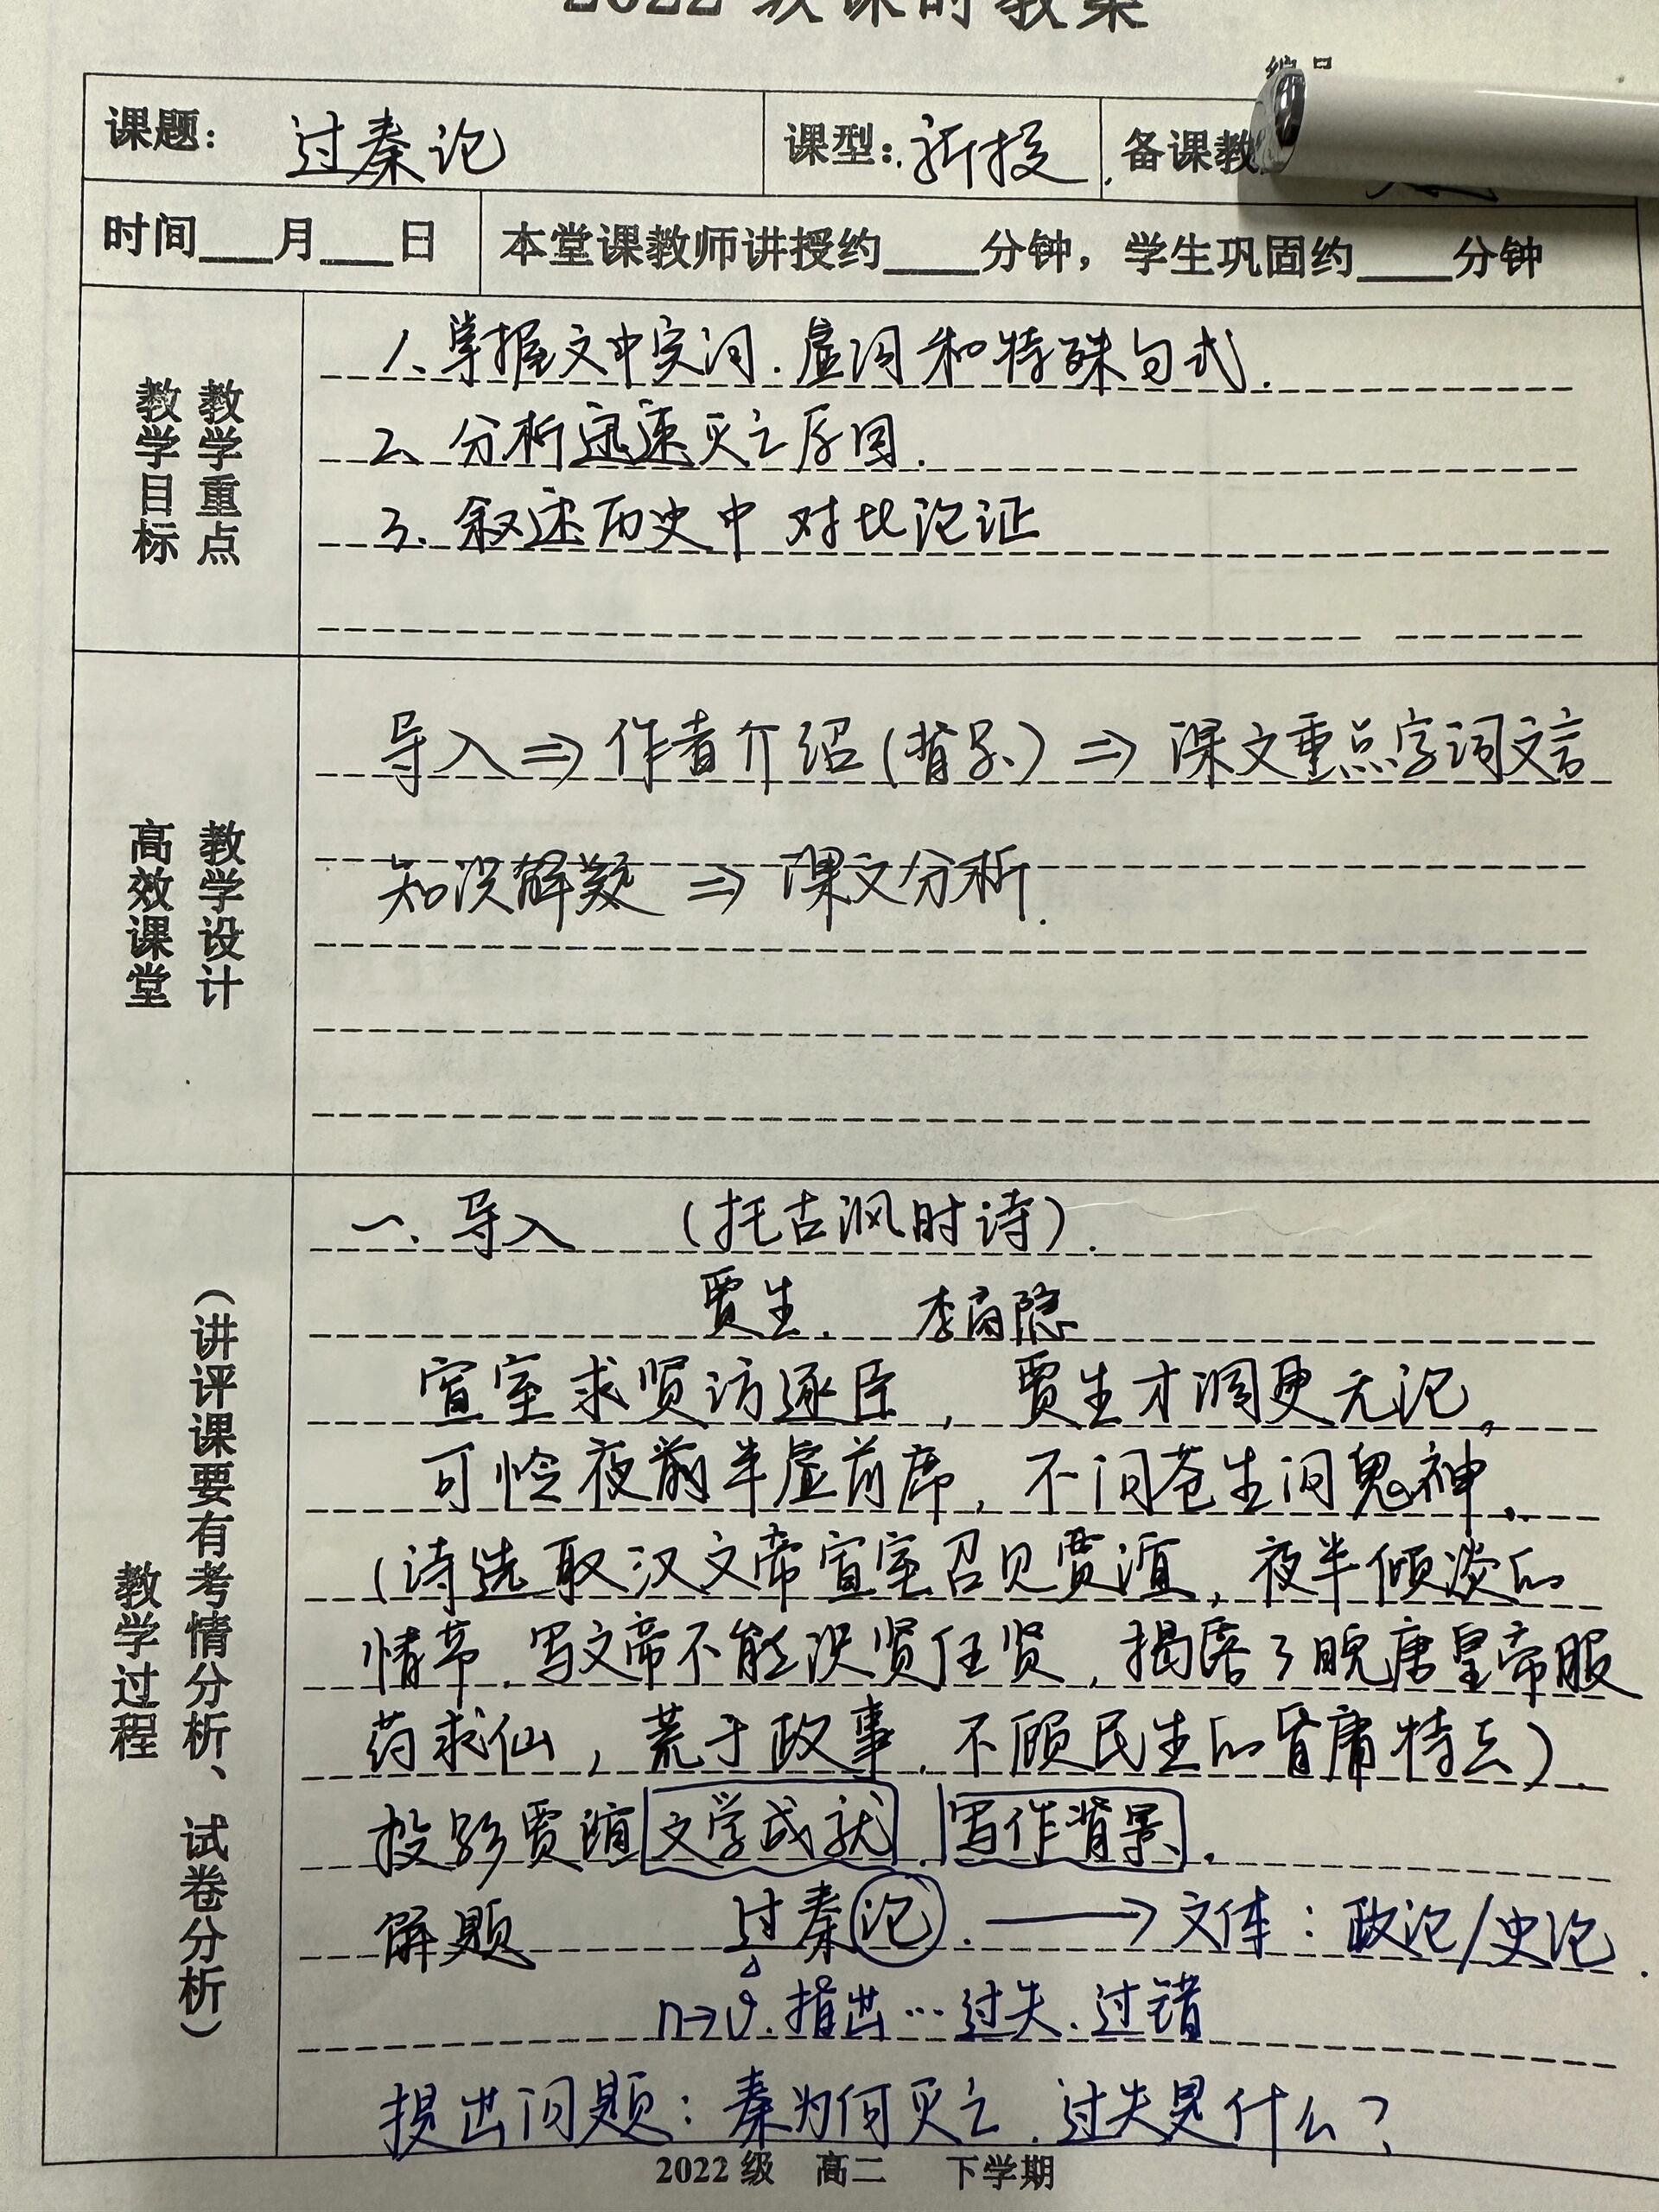 2022 级课时教案
课题: 过秦论 课型: 新授. 备课教
时间___月___日 本堂课教师讲授约____分钟，学生巩固约____分钟
教学目标 教学重点
1、掌握文中实词.虚词和特殊句式.
2、分析迅速灭亡原因.
3、叙述历史中 对比论证
高效课堂 教学设计
导入⇒作者介绍(背景)⇒课文重点字词文言
知识解疑 ⇒ 课文分析.
教学过程
（讲评课要有考情分析、试卷分析）
一、导入 (托古讽时诗).
贾生. 李商隐
宣室求贤访逐臣，贾生才调更无论。
可怜夜前半虚前席，不问苍生问鬼神.
(诗选取汉文帝宣室召见贾谊，夜半倾谈的
情节.写文帝不能识贤任贤，揭露了晚唐皇帝服
药求仙，荒于政事，不顾民生的昏庸特点).
投影贾谊 文学成就 写作背景.
解题 过秦论. → 文体：政论/史论.
n→v.指出…过失.过错
提出问题：秦为何灭亡.过失是什么?
2022级 高二 下学期